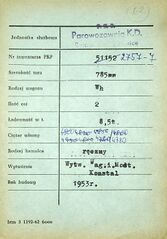 Jednostka służbowa
Parowozownia K.D.
Nr inwentarza PKP
51152 2757-7
Szerokość toru
785mm
Rodzaj wagonu
Wh
Ilość osi
2
Ładowność w t.
8,5t.
Ciężar własny
Rodzaj hamulca
ręczny
Wytwórnia
Wytw. Wag.i Most.
Konstal
Rok budowy
1953r.